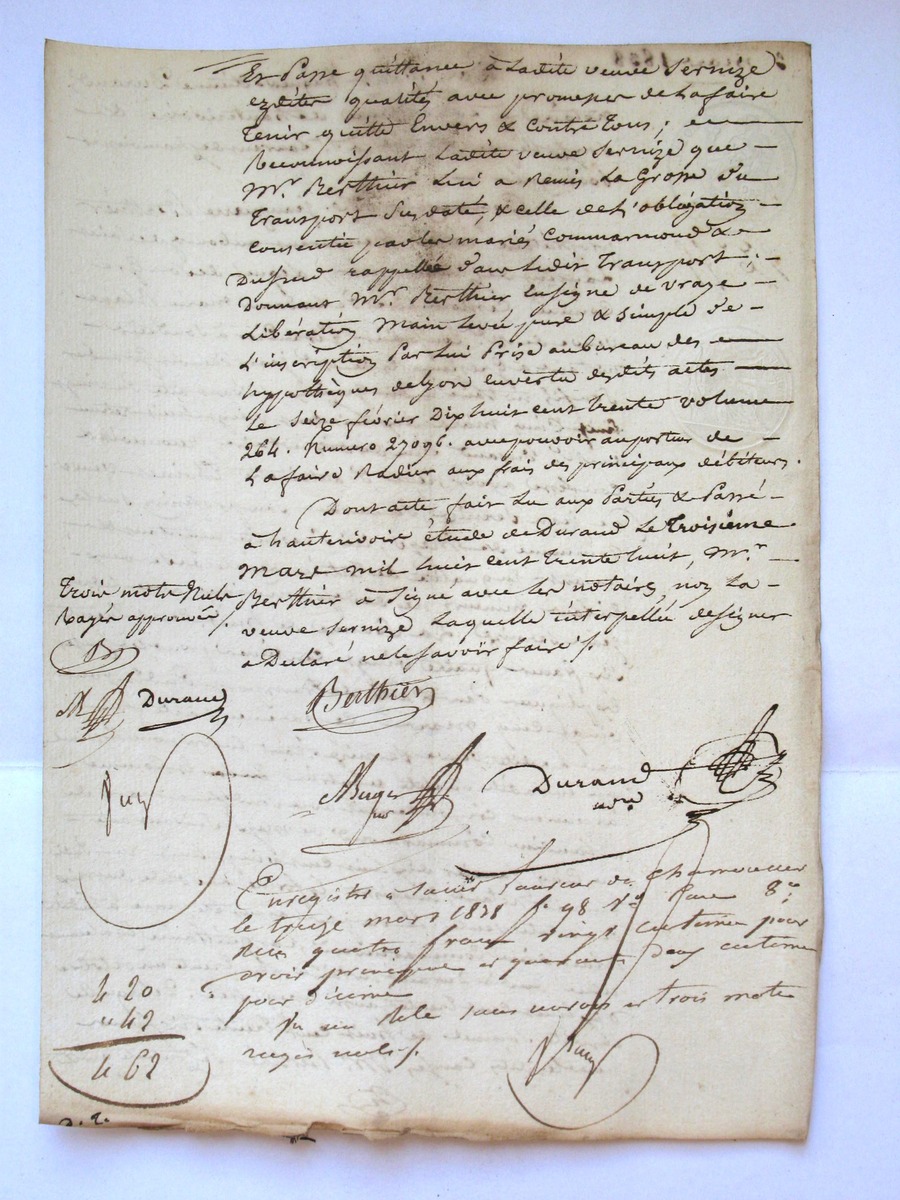 Et Passe quittance à Ladite veuve Sernize
ezdites qualités avec promesse de La faire
Tenir quitte Envers & Contre Tous ;
Reconnoissant Ladite veuve Sernize que
Mr. Berthier Lui a Remis La Grosse du
Transport Susdaté, & celle de L'obligation
consentie par les mariés Commarmond &
Dufend rappellée dans Ledit Transport ;
Donnant Mr. Berthier En signe de vraye
Libération main Levée pure & simple de
L'inscription Par Lui Prise au bureau des
hypothèques de Lyon en vertu desdits actes
Le Seize février Dix huit cent trente volume
264. Numero 27096. avec pouvoir au porteur de
La faire Radier aux frais des principaux débiteurs.
Dont acte fait Lu aux Parties & Passé
à hauterivoire étude de Durand Le Troisième
Mars mil huit cent trente huit, Mr.
Berthier à Signé avec Les notaires, non La
veuve Sernize Laquelle interpellée de signer
a Déclaré ne le savoir faire /.
Trois mots Nuls
Rayés approuvés /.
B
M Durand
Berthier
Durand
Enregistré à Saint Laurent de Chamousset
le treize mars 1838 fo 98 Vo Case 8e
Reçu quatre francs vingt centimes pour
droit principal et quarante deux centimes
pour décime
4 20
" 42
4 62
un Role sans renvois et trois mots
rayés nuls /.